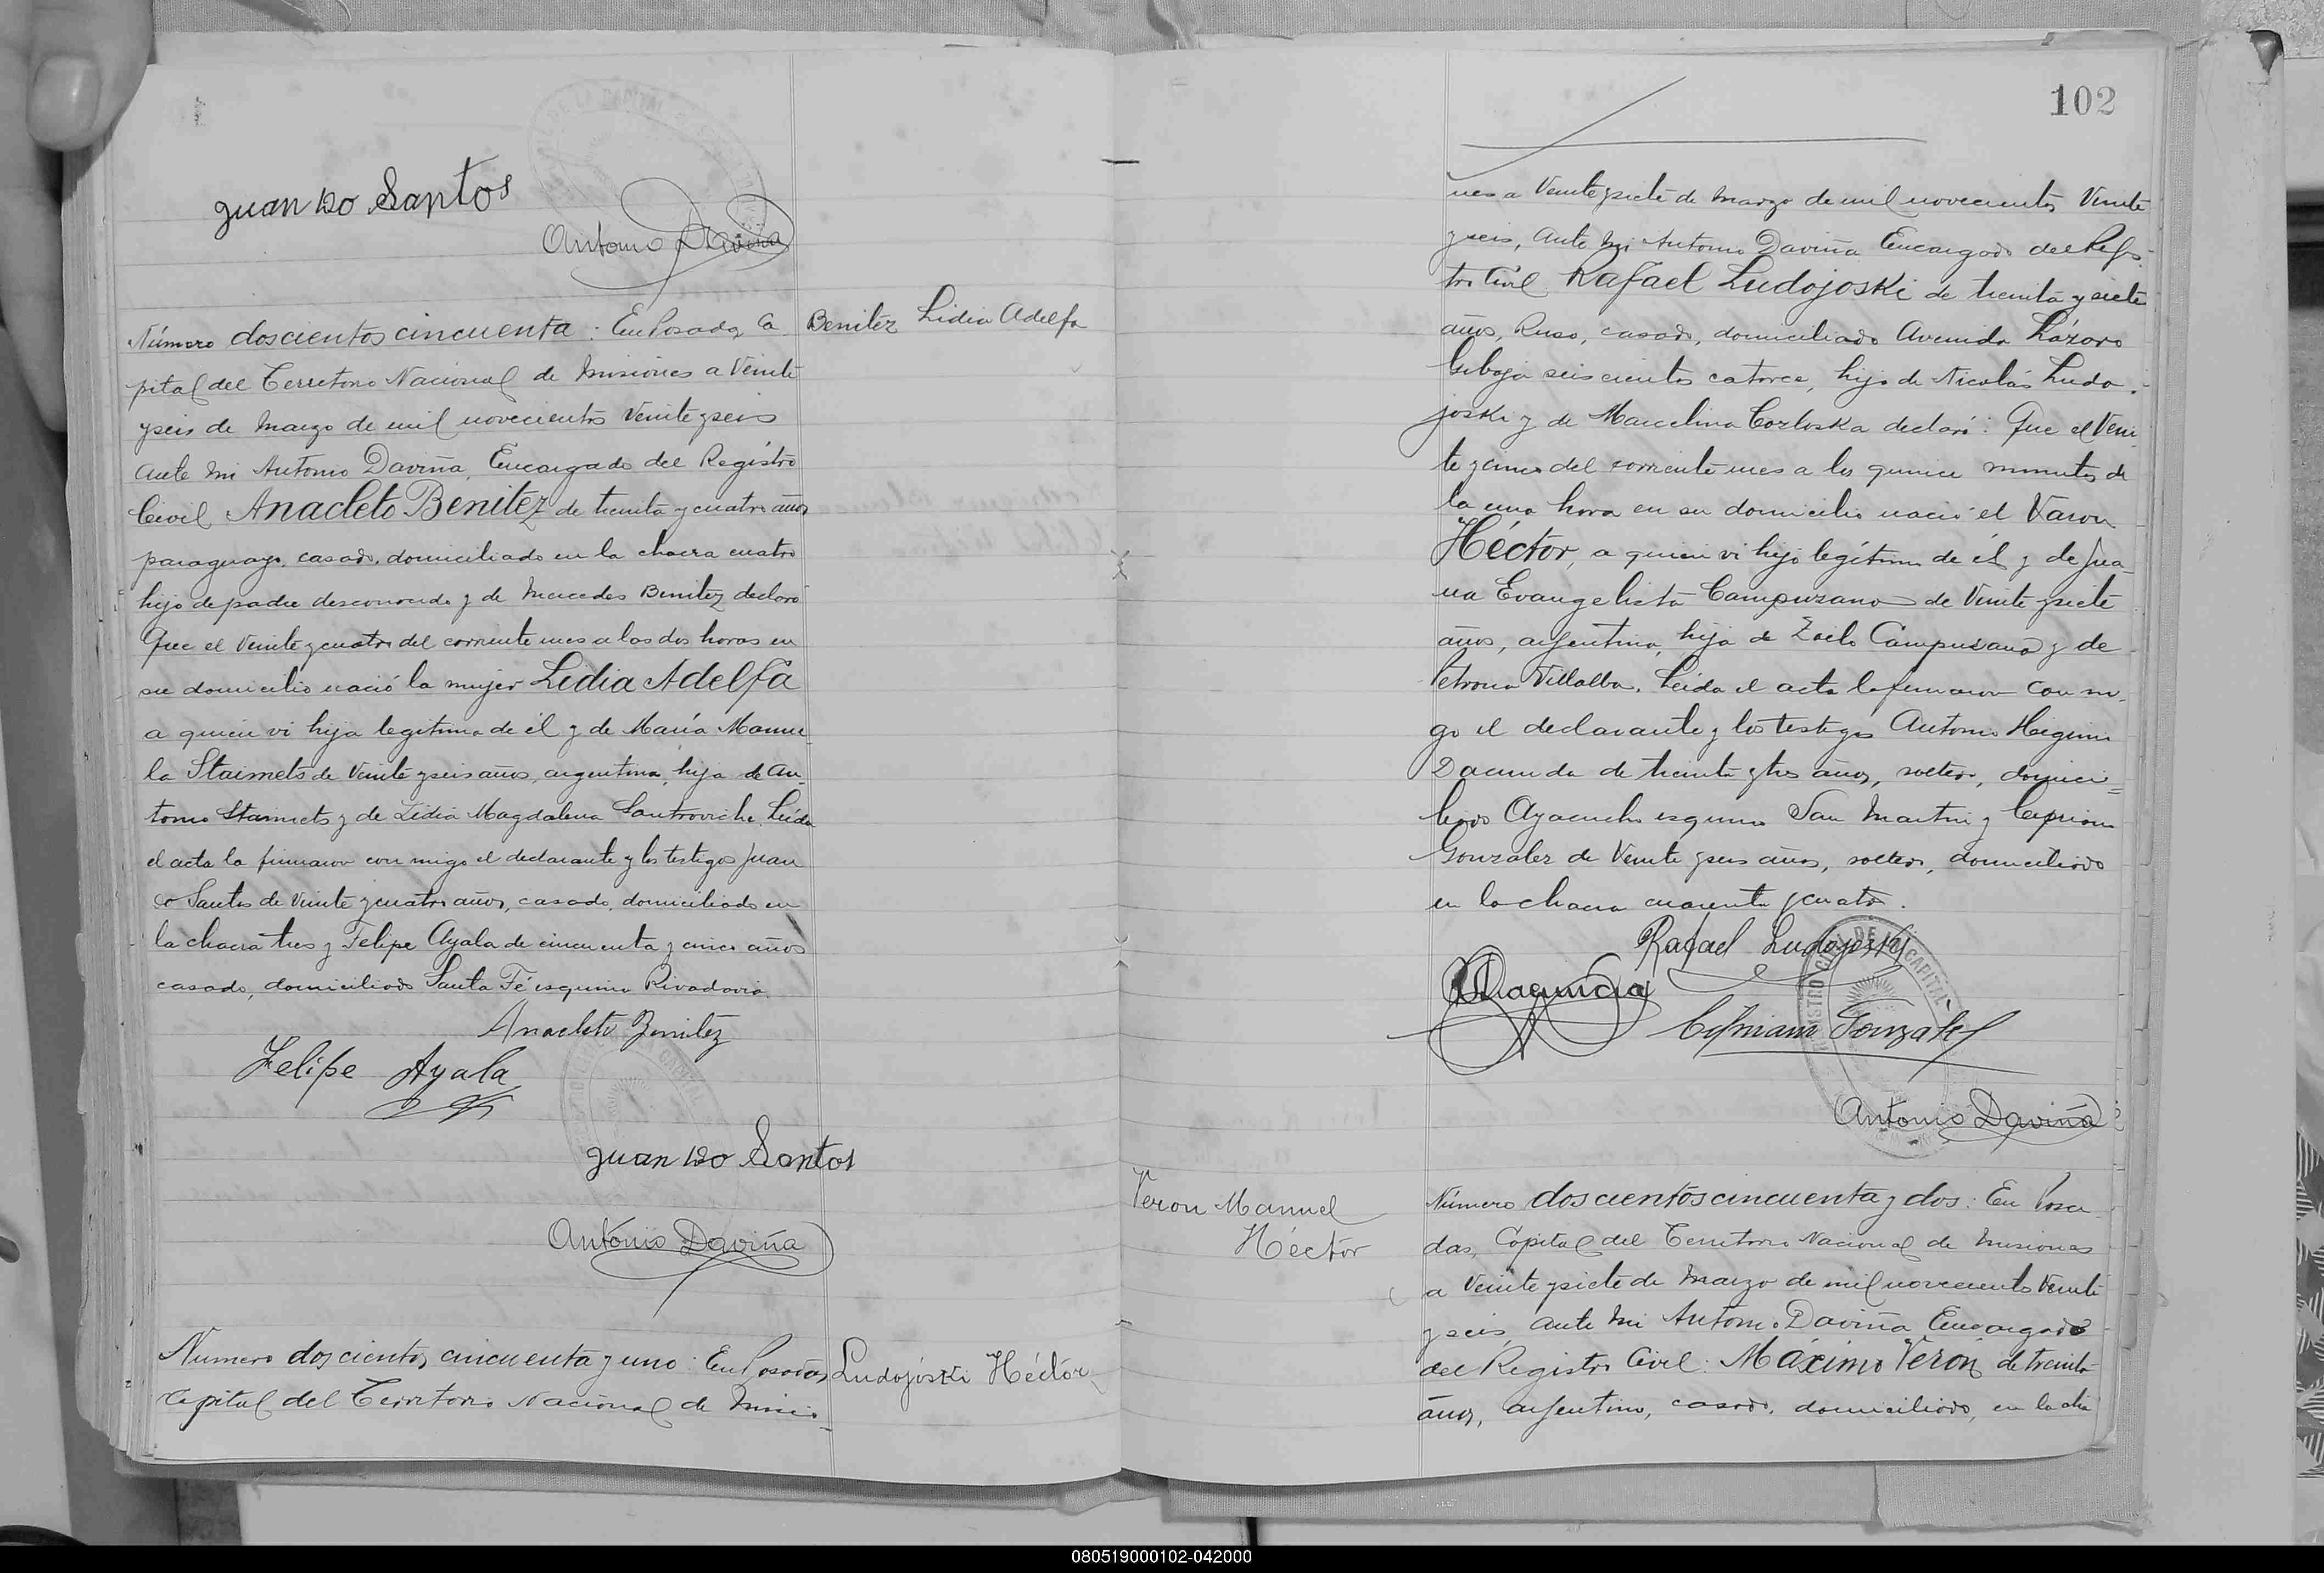 Juan Do Santos
Antonio Daviña
Número doscientos cincuenta: En Posadas, Ca
pital del Territorio Nacional de Misiones a Veinte
y seis de Marzo de mil novecientos Veinte y seis
ante mi Antonio Daviña, Encargado del Registro
Civil Anacleto Benitez de treinta y cuatro años
paraguayo, casado, domiciliado en la chacra cuatro
hijo de padre desconocido y de Mercedes Benitez declaró
Que el Veinte y cuatro del corriente mes a las dos horas en
su domicilio nació la mujer Lidia Adelfa
a quien vi hija legitima de él y de María Manue
la Staimets de Veinte y seis años, argentina, hija de An-
tonio Staimets y de Lidia Magdalena Santroviche. Leída
el acta la firmaron con migo el declarante y los testigos Juan
do Santos de Veinte y cuatro años, casado, domiciliado en
la chacra tres y Felipe Ayala de cincuenta y cinco años
casado, domiciliado Santa Fé esquina Rivadavia.
Anacleto Benitez
Felipe Ayala
Juan Do Santos
Antonio Daviña
Benitez Lidia Adelfa
Número doscientos cincuenta y uno: En Posadas,
Capital del Territorio Nacional de Misio-
Ludojoski Héctor
102
nes a Veinte y siete de Marzo de mil novecientos Veinte
y seis, Ante mi Antonio Daviña Encargado del Regis-
tro Civil Rafael Ludojoski de treinta y siete
años, Ruso, casado, domiciliado Avenida Lázaro
Gibaja seiscientos catorce, hijo de Nicolás Ludo-
joski y de Marcelina Cozloska declaró: Que el Vein
te y cinco del corriente mes a los quince minutos de
la una hora en su domicilio nació el Varon
Héctor, a quien vi hijo legítimo de él y de Jua-
na Evangelista Campuzano de Veinte y siete
años, argentina, hija de Zoilo Campuzano y de
Petrona Villalba. Leída el acta la firmaron con mi-
go el declarante y los testigos Antonio Higinio
Dacunda de treinta y tres años, soltero, domici=
liado Ayacucho esquina San Martin y Cipriano
Gonzalez de Veinte y seis años, soltero, domiciliado
en la chacra cuarenta y cuatro.
Rafael Ludojosky
Cipriano Gonzalez
Antonio Daviña
Veron Manuel
Héctor
Número doscientos cincuenta y dos: En Posa-
das, Capital del Territorio Nacional de Misiones
a Veinte y siete de Marzo de mil novecientos Veinte
y seis, ante mi Antonio Daviña Encargado
del Registro Civil: Máximo Veron, de treinta
años, argentino, casado, domiciliado, en la cha
080519000102-042000